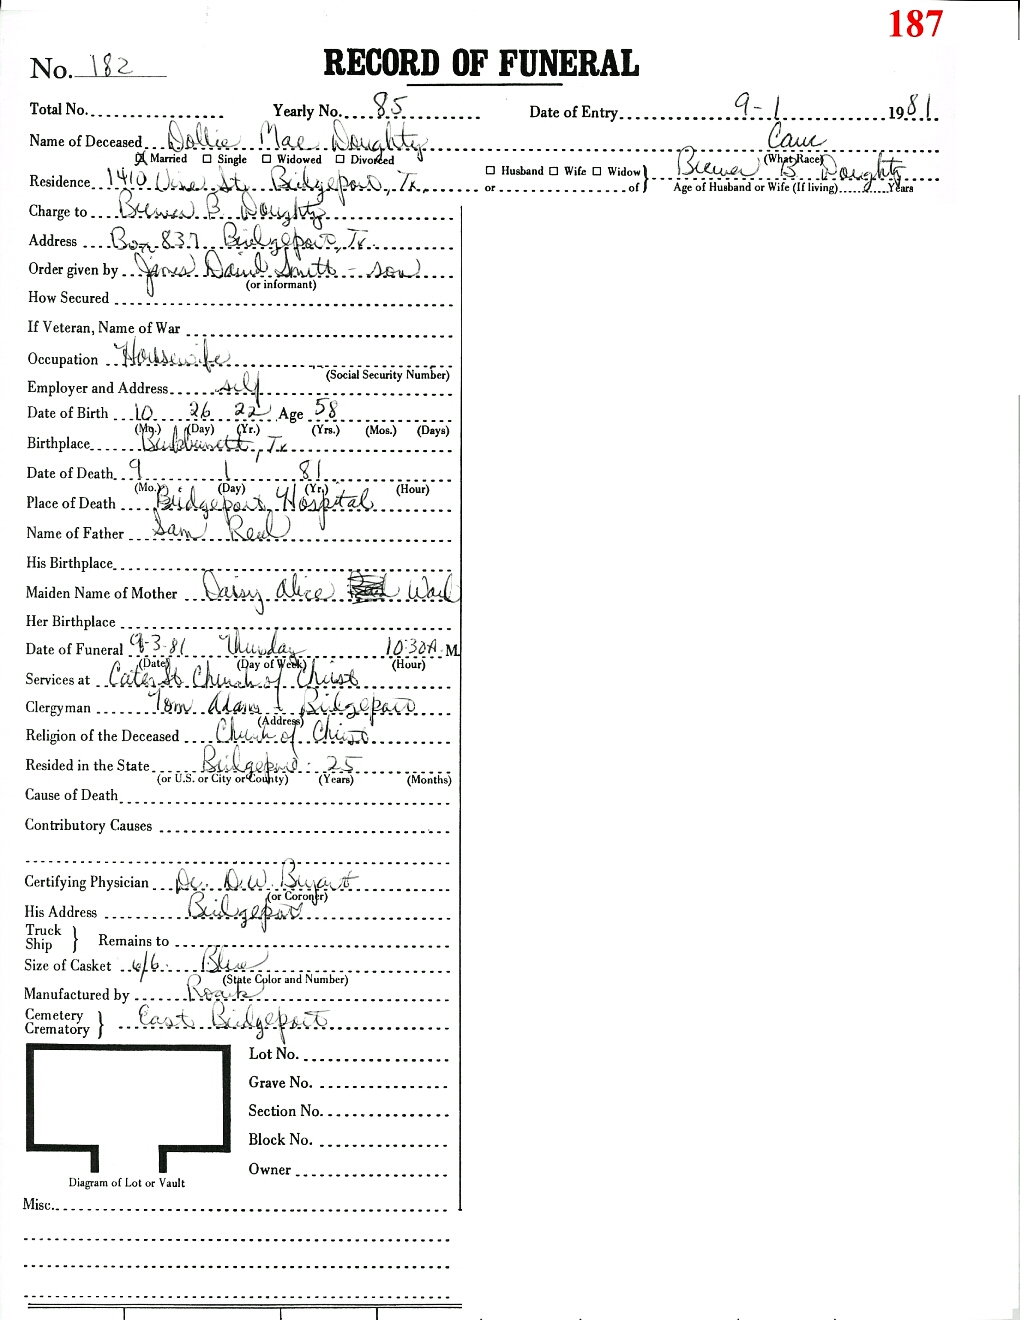 187
No. 182
RECORD OF FUNERAL
Total No. Yearly No. 85 Date of Entry 9-1 1981
Name of Deceased Dollie Mae Doughty Cauc
☒ Married ☐ Single ☐ Widowed ☐ Divorced (What Race)
Residence 1410 Vine St. Bridgeport, Tx. ☐ Husband ☐ Wife ☐ Widow or of } Brewer B Doughty
Age of Husband or Wife (If living) Years
Charge to Brewer B Doughty
Address Box 837 Bridgeport, Tx.
Order given by James David Smith - son
(or informant)
How Secured
If Veteran, Name of War
Occupation Housewife
(Social Security Number)
Employer and Address self
Date of Birth 10 26 22 Age 58
(Mo.) (Day) (Yr.) (Yrs.) (Mos.) (Days)
Birthplace Burkburnett, Tx
Date of Death 9 1 81
(Mo.) (Day) (Yr.) (Hour)
Place of Death Bridgeport Hospital
Name of Father Sam
His Birthplace
Maiden Name of Mother Daisy Alice
Her Birthplace
Date of Funeral 9-3-81 Thursday 10:30A.M.
(Date) (Day of Week) (Hour)
Services at Cates St Church of Christ
Clergyman Tom Adams - Bridgeport
(Address)
Religion of the Deceased Church of Christ
Resided in the State Bridgeport 25
(or U.S. or City or County) (Years) (Months)
Cause of Death
Contributory Causes
Certifying Physician Dr. D.W. Bryant
(or Coroner)
His Address Bridgeport
Truck
Ship } Remains to
Size of Casket 6/6 Blue
(State Color and Number)
Manufactured by Roark
Cemetery
Crematory } East Bridgeport
Lot No.
Grave No.
Section No.
Block No.
Owner
Diagram of Lot or Vault
Misc.